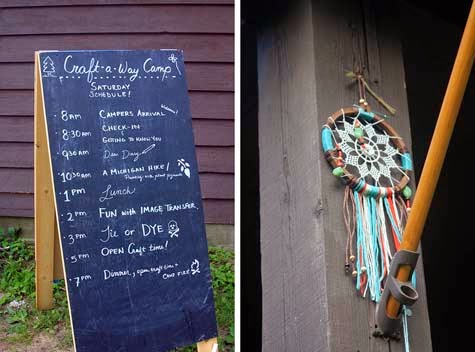 Craft-a-Way Camp
SATURDAY
SCHEDULE!
8AM CAMPERS ARRIVAL
8:30AM CHECK-IN
GETTING TO KNOW YOU
9:30AM Dew Drag
10:30AM A MICHIGAN HIKE!
1PM Lunch
2PM FUN with IMAGE TRANSFER
3PM Tie OR DYE
5PM OPEN Craft time!
7PM Dinner, open craft time +
CAMP FIRE